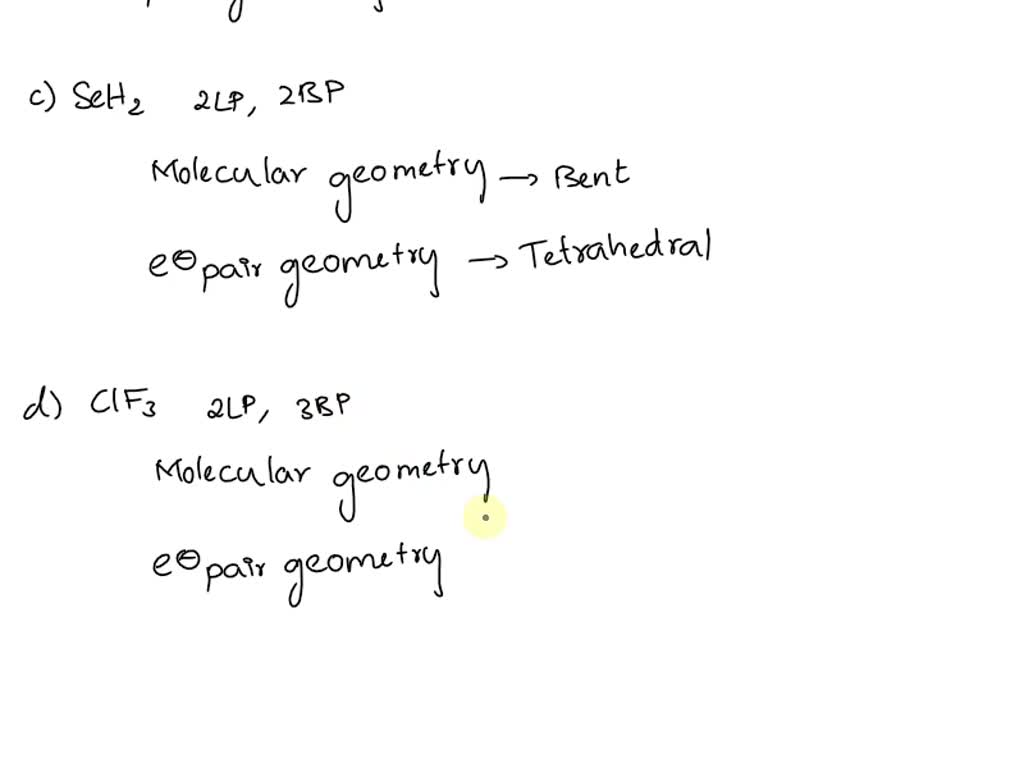 c) SeH₂ 2LP, 2BP
Molecular geometry → Bent
e⊖ pair geometry → Tetrahedral
d) ClF₃ 2LP, 3BP
Molecular geometry
e⊖ pair geometry